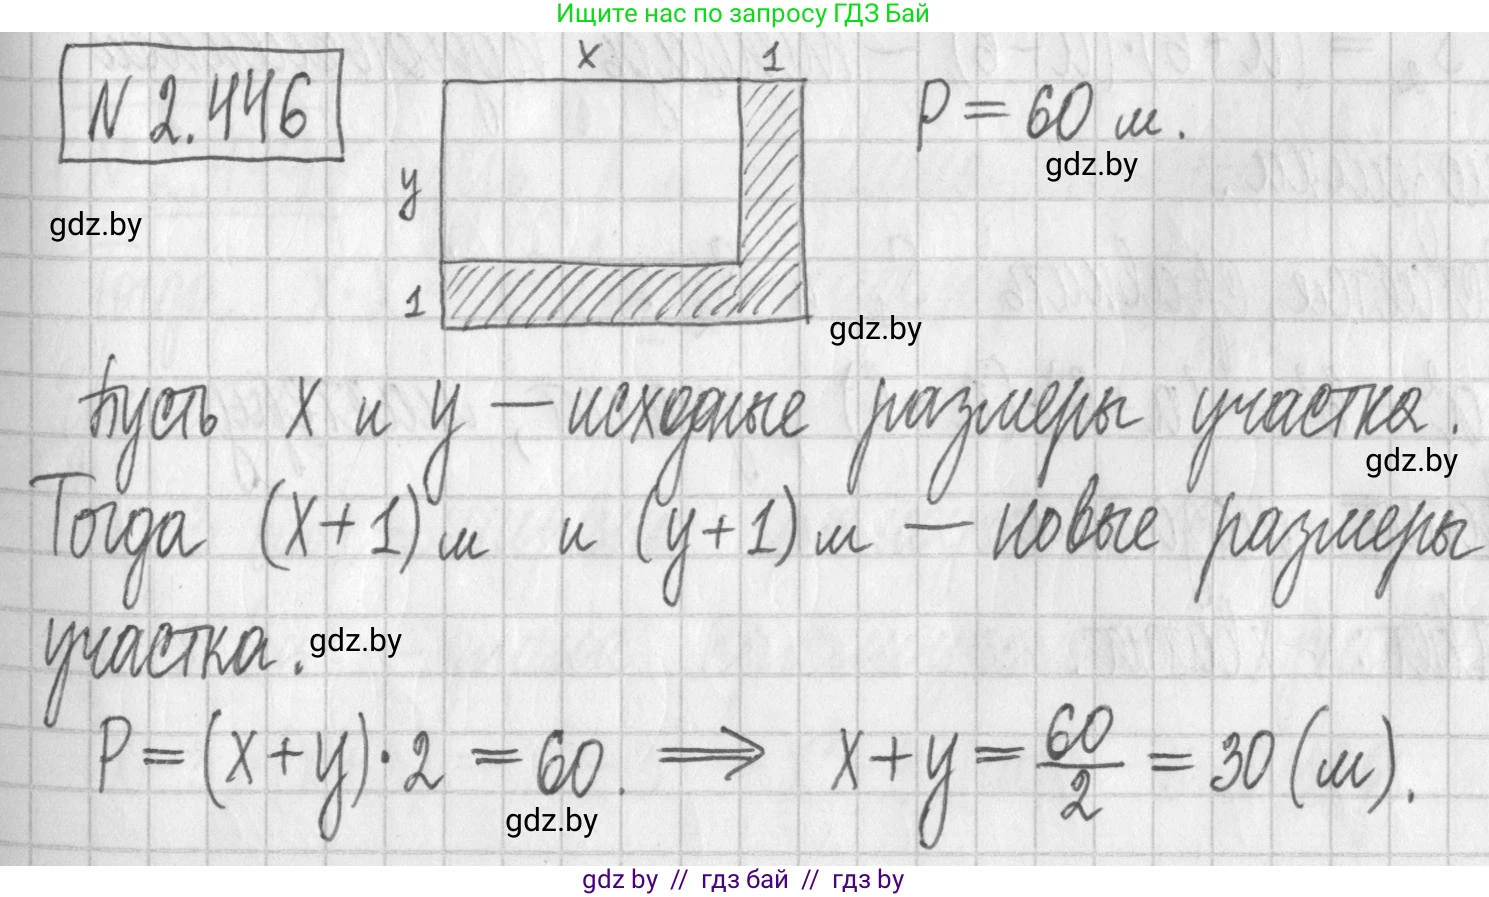 Ищите нас по запросу ГДЗ Бай
N 2.446
x 1
P = 60 м.
gdz.by
y
gdz.by
1
gdz.by
Пусть x и y — исходные размеры участка.
gdz.by
Тогда (x+1) м и (y+1) м — новые размеры
участка.
gdz.by
P = (x+y)·2 = 60. ⟹ x+y = 60/2 = 30 (м).
gdz.by
gdz by // гдз бай // гдз by